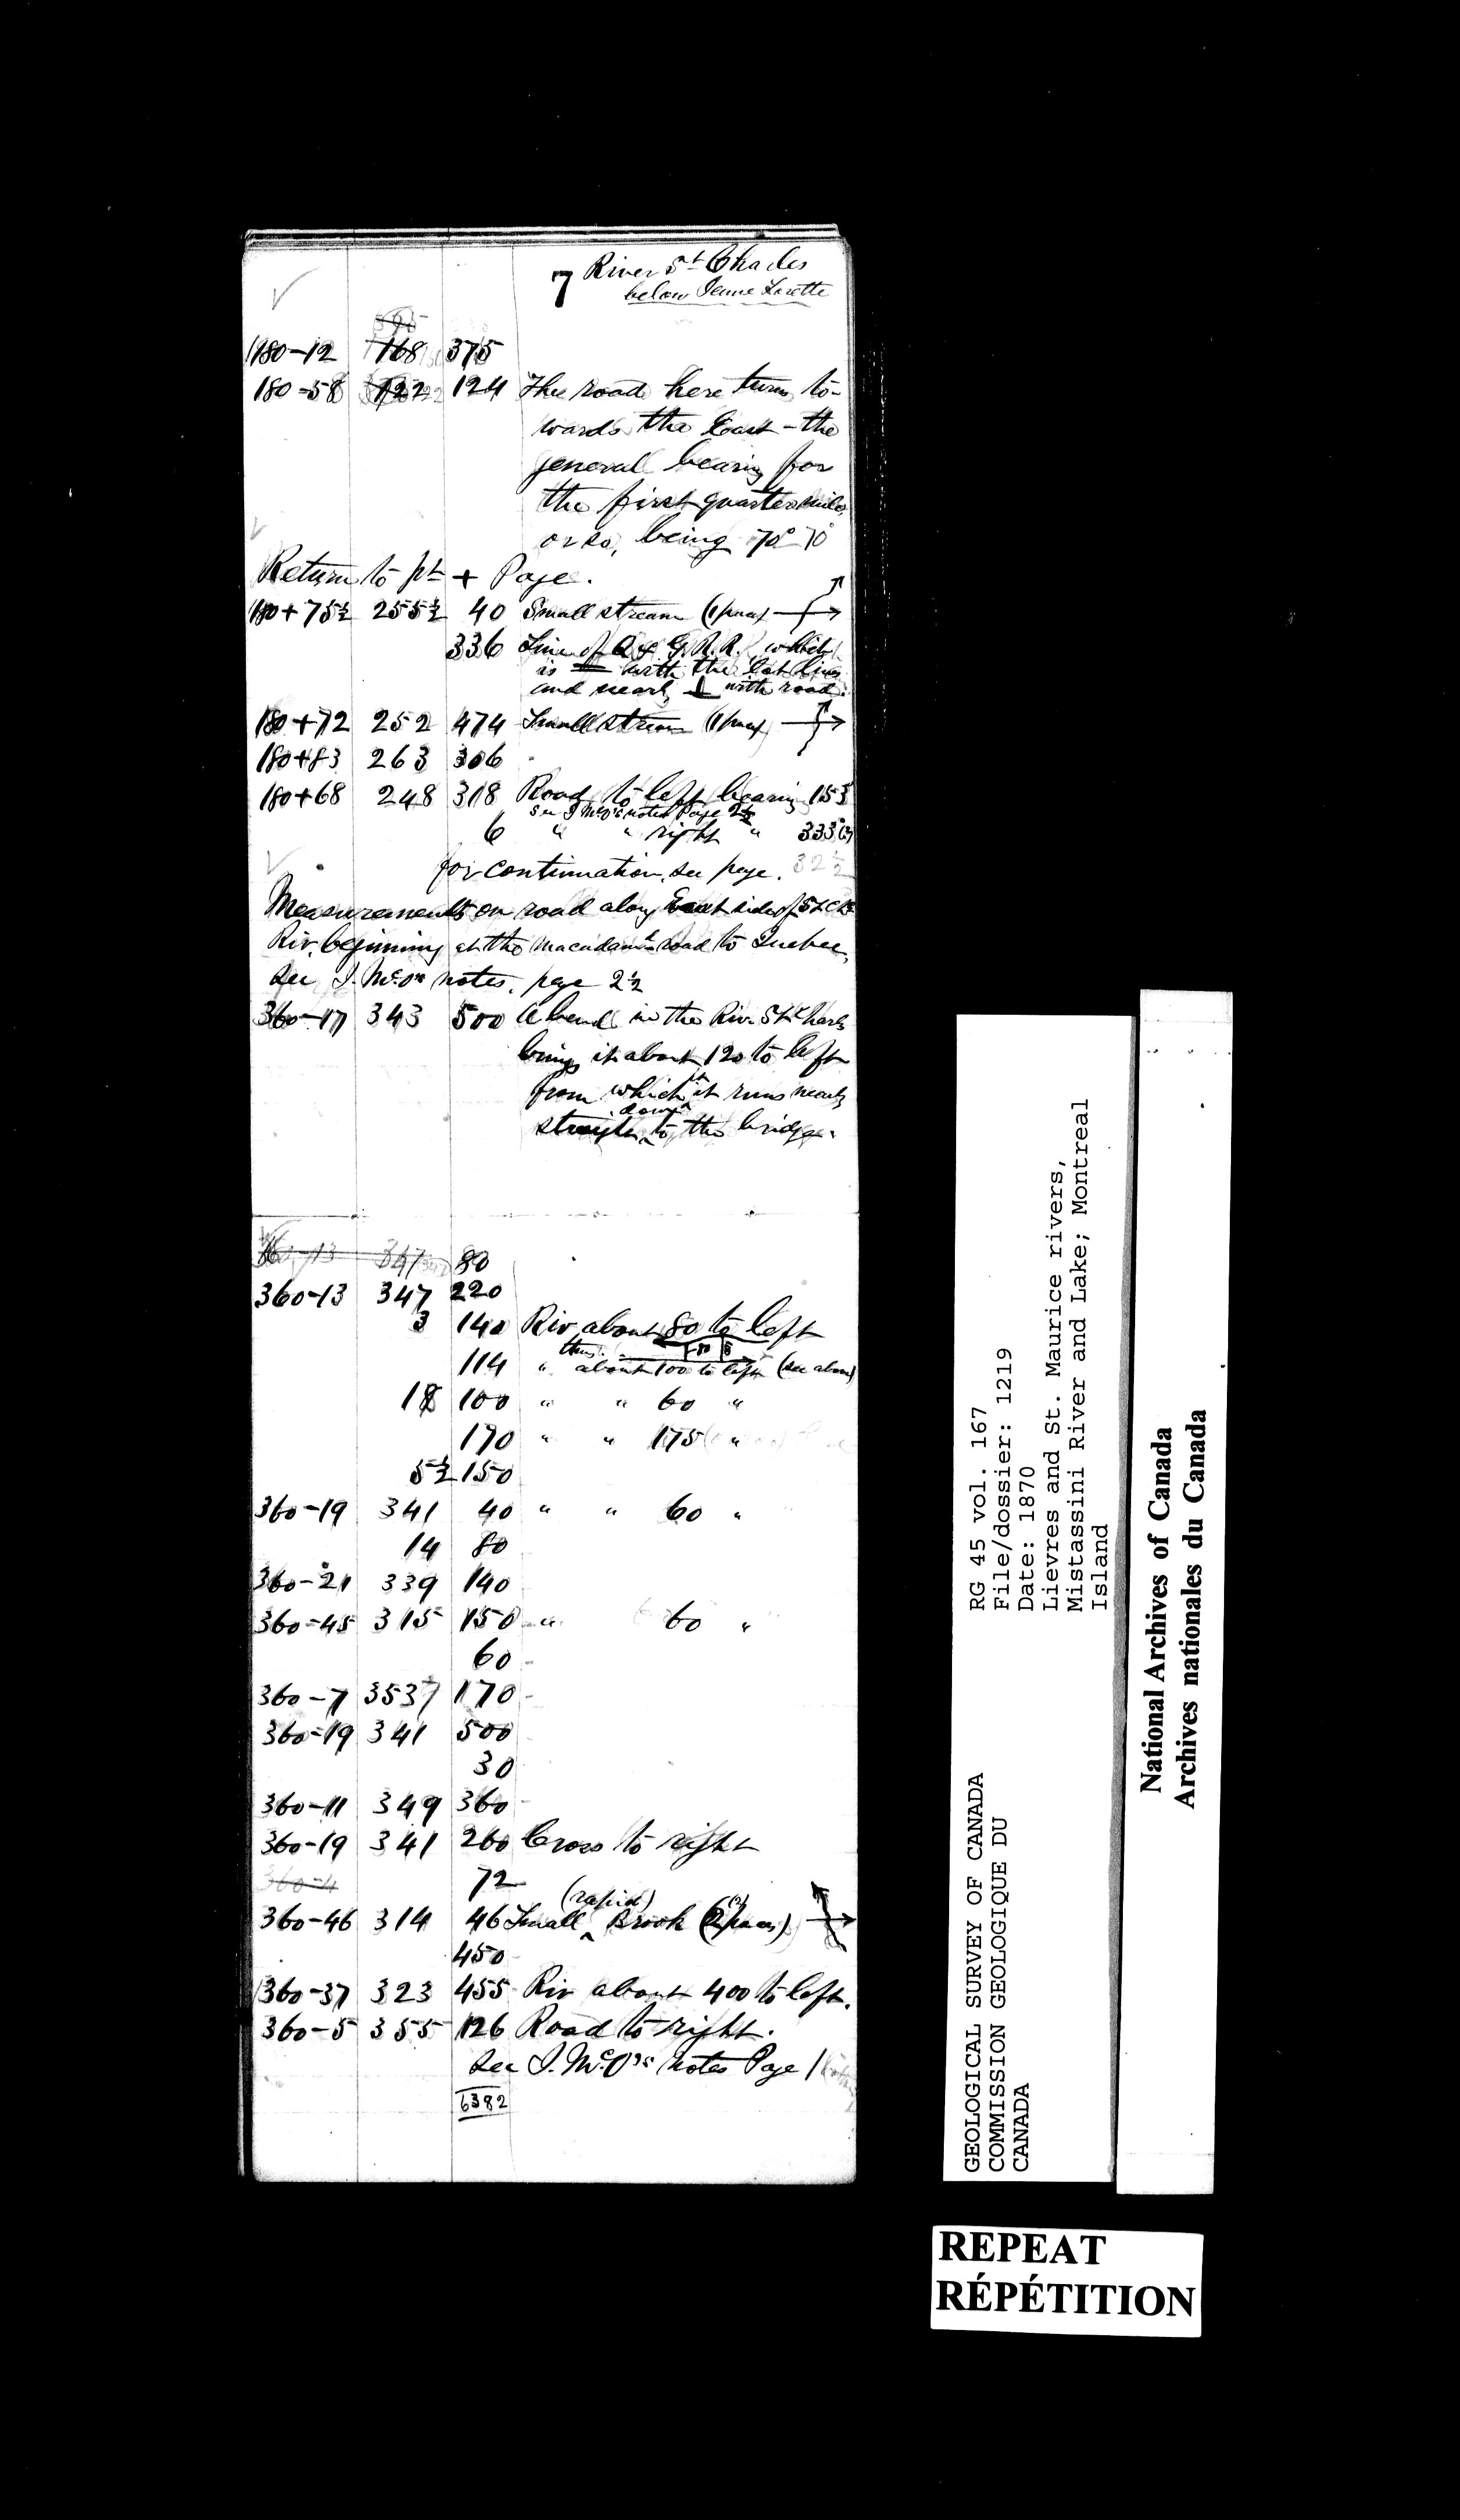 7 River St Charles
below Jeune Lorette
180-12 168 375
180-58 122 124 The road here turns to-
wards the East - the
general bearing for
the first quarter mile
or so, being 70° 70°
Return to pt + Page.
180+75½ 255½ 40 Small stream (1 pace)
336 Line of Q & G. R. R. which
is with the lot lines
and nearly ⊥ with road.
180+72 252 474 Small stream (1 pace)
180+83 263 306
180+68 248 318 Road to left bearing 153
See J McO's notes Page 2½
6 " " right " 333
for continuation, see page. 32½
Measurements on road along East side of St Ch
Riv. beginning at the macadamd road to Quebec,
see J. McOs notes, page 2½
360-17 343 500 A bend in the Riv. St Charles
brings it about 120 to left
from which pt it runs nearly
straight down to the bridge.
360-13 347 80
360-13 347 220
3 140 Riv about 80 to left
thus
114 " about 100 to left (see above)
18 100 " " 60 "
170 " " 175 "
5½ 150
360-19 341 40 " " 60 "
14 80
360-21 339 140
360-45 315 150 " 60 "
60
360-7 353 170
360-19 341 500
30
360-11 349 360
360-19 341 260 Cross to right
360-4 72
(rapid)
360-46 314 46 Small Brook (2 paces)
450
360-37 323 455 Riv about 400 to left.
360-5 355 126 Road to right.
See J. McO's notes Page 1
6382
GEOLOGICAL SURVEY OF CANADA
COMMISSION GEOLOGIQUE DU
CANADA
RG 45 vol. 167
File/dossier: 1219
Date: 1870
Lievres and St. Maurice rivers,
Mistassini River and Lake; Montreal
Island
National Archives of Canada
Archives nationales du Canada
REPEAT
RÉPÉTITION